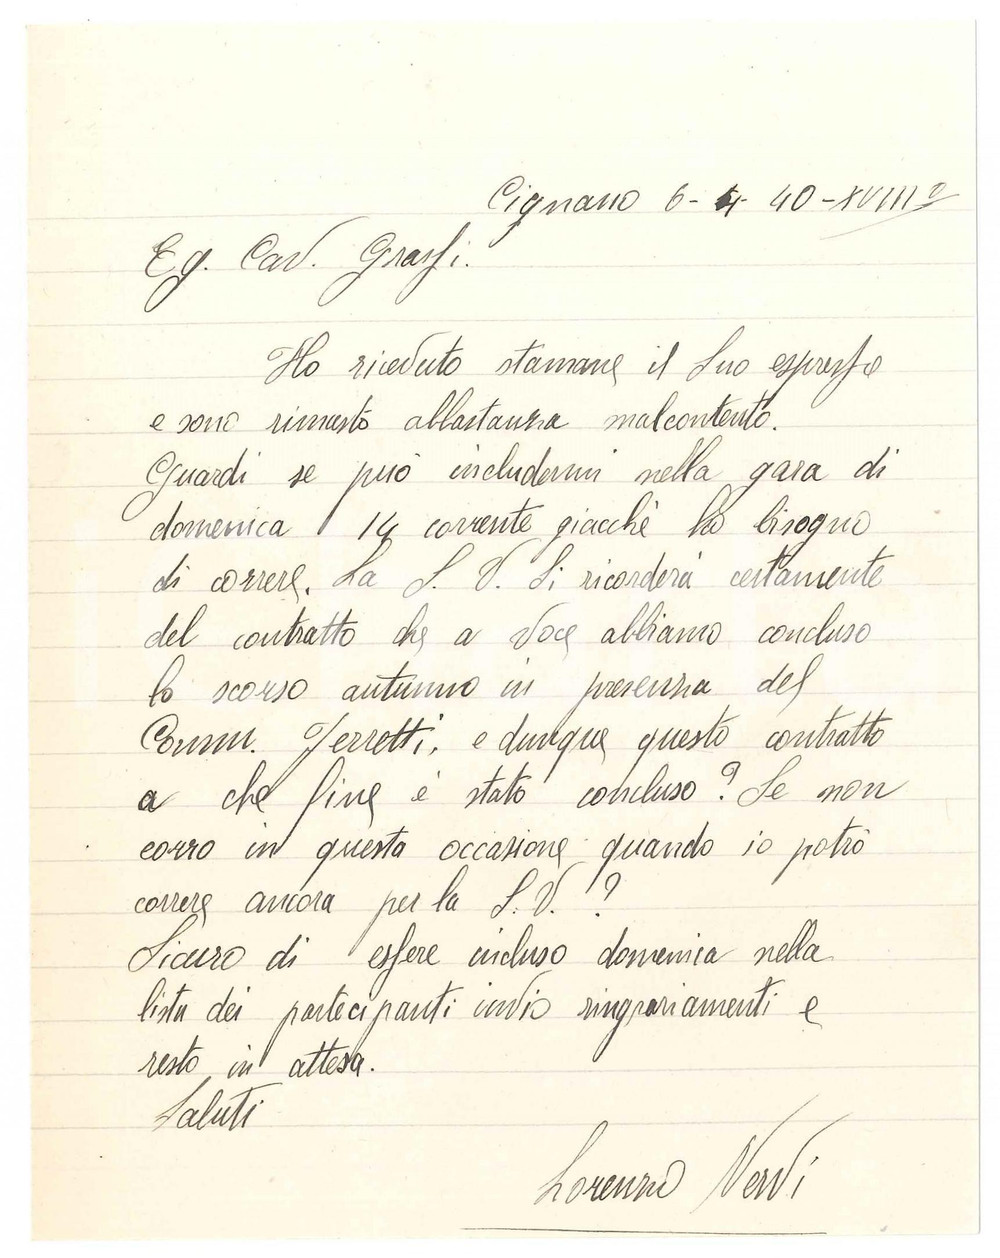 Cignano 6-4-40-XVIIIº
Eg. Cav. Grassi.
Ho ricevuto stamane il Suo espresso
e sono rimasto abbastanza malcontento.
Guardi se può includermi nella gara di
domenica 14 corrente giacchè ho bisogno
di correre. La S. V. Si ricorderà certamente
del contratto che a voce abbiamo concluso
lo scorso autunno in presenza del
Comm. Ferretti, e dunque questo contratto
a che fine è stato concluso? Se non
corro in questa occasione quando io potrò
correre ancora per la S. V. ?
Sicuro di essere incluso domenica nella
lista dei partecipanti invio ringraziamenti e
resto in attesa.
Saluti
Lorenzo Nervi